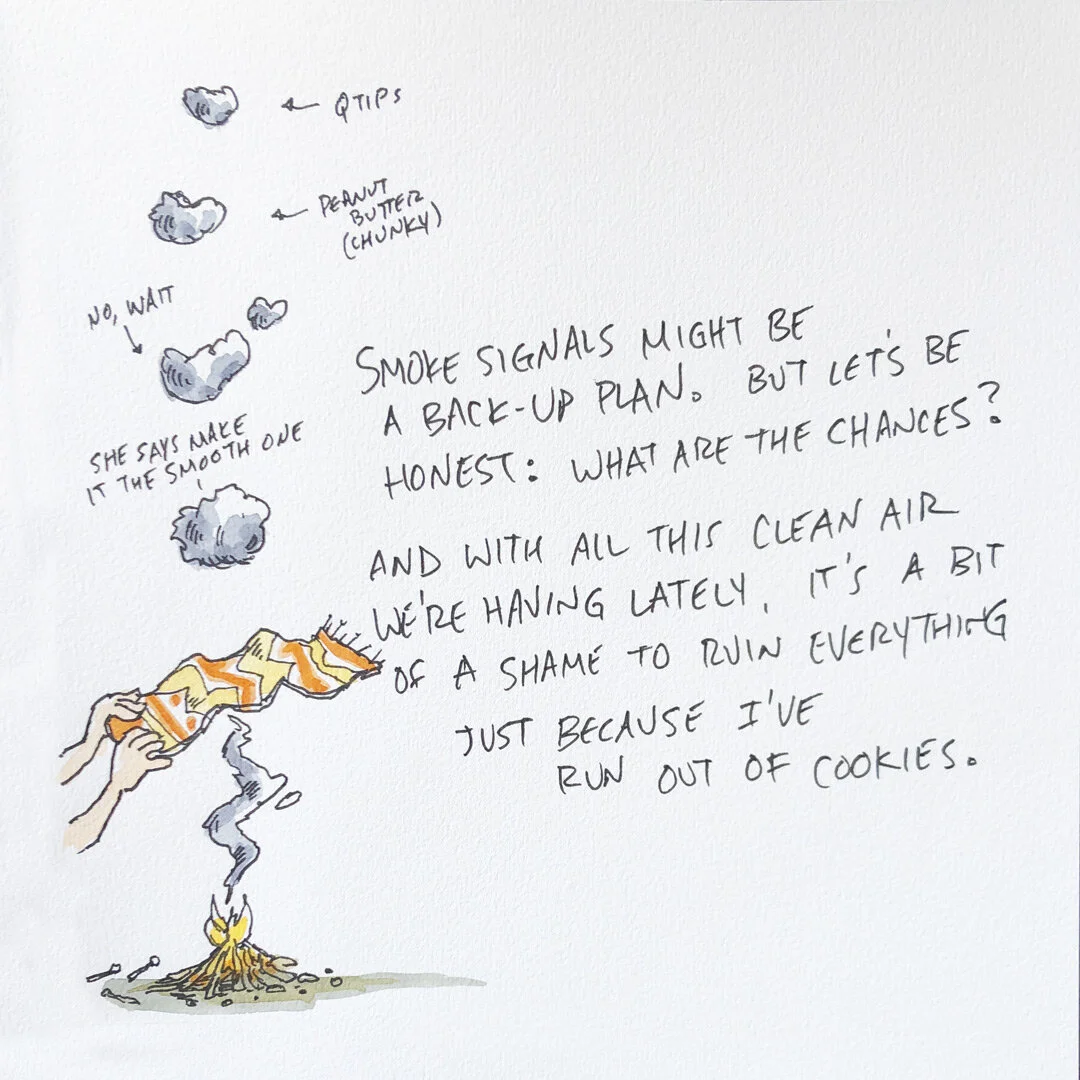 QTIPS
PEANUT
BUTTER
(CHUNKY)
NO, WAIT
SHE SAYS MAKE
IT THE SMOOTH ONE
SMOKE SIGNALS MIGHT BE
A BACK-UP PLAN. BUT LET'S BE
HONEST: WHAT ARE THE CHANCES?
AND WITH ALL THIS CLEAN AIR
WE'RE HAVING LATELY, IT'S A BIT
OF A SHAME TO RUIN EVERYTHING
JUST BECAUSE I'VE
RUN OUT OF COOKIES.